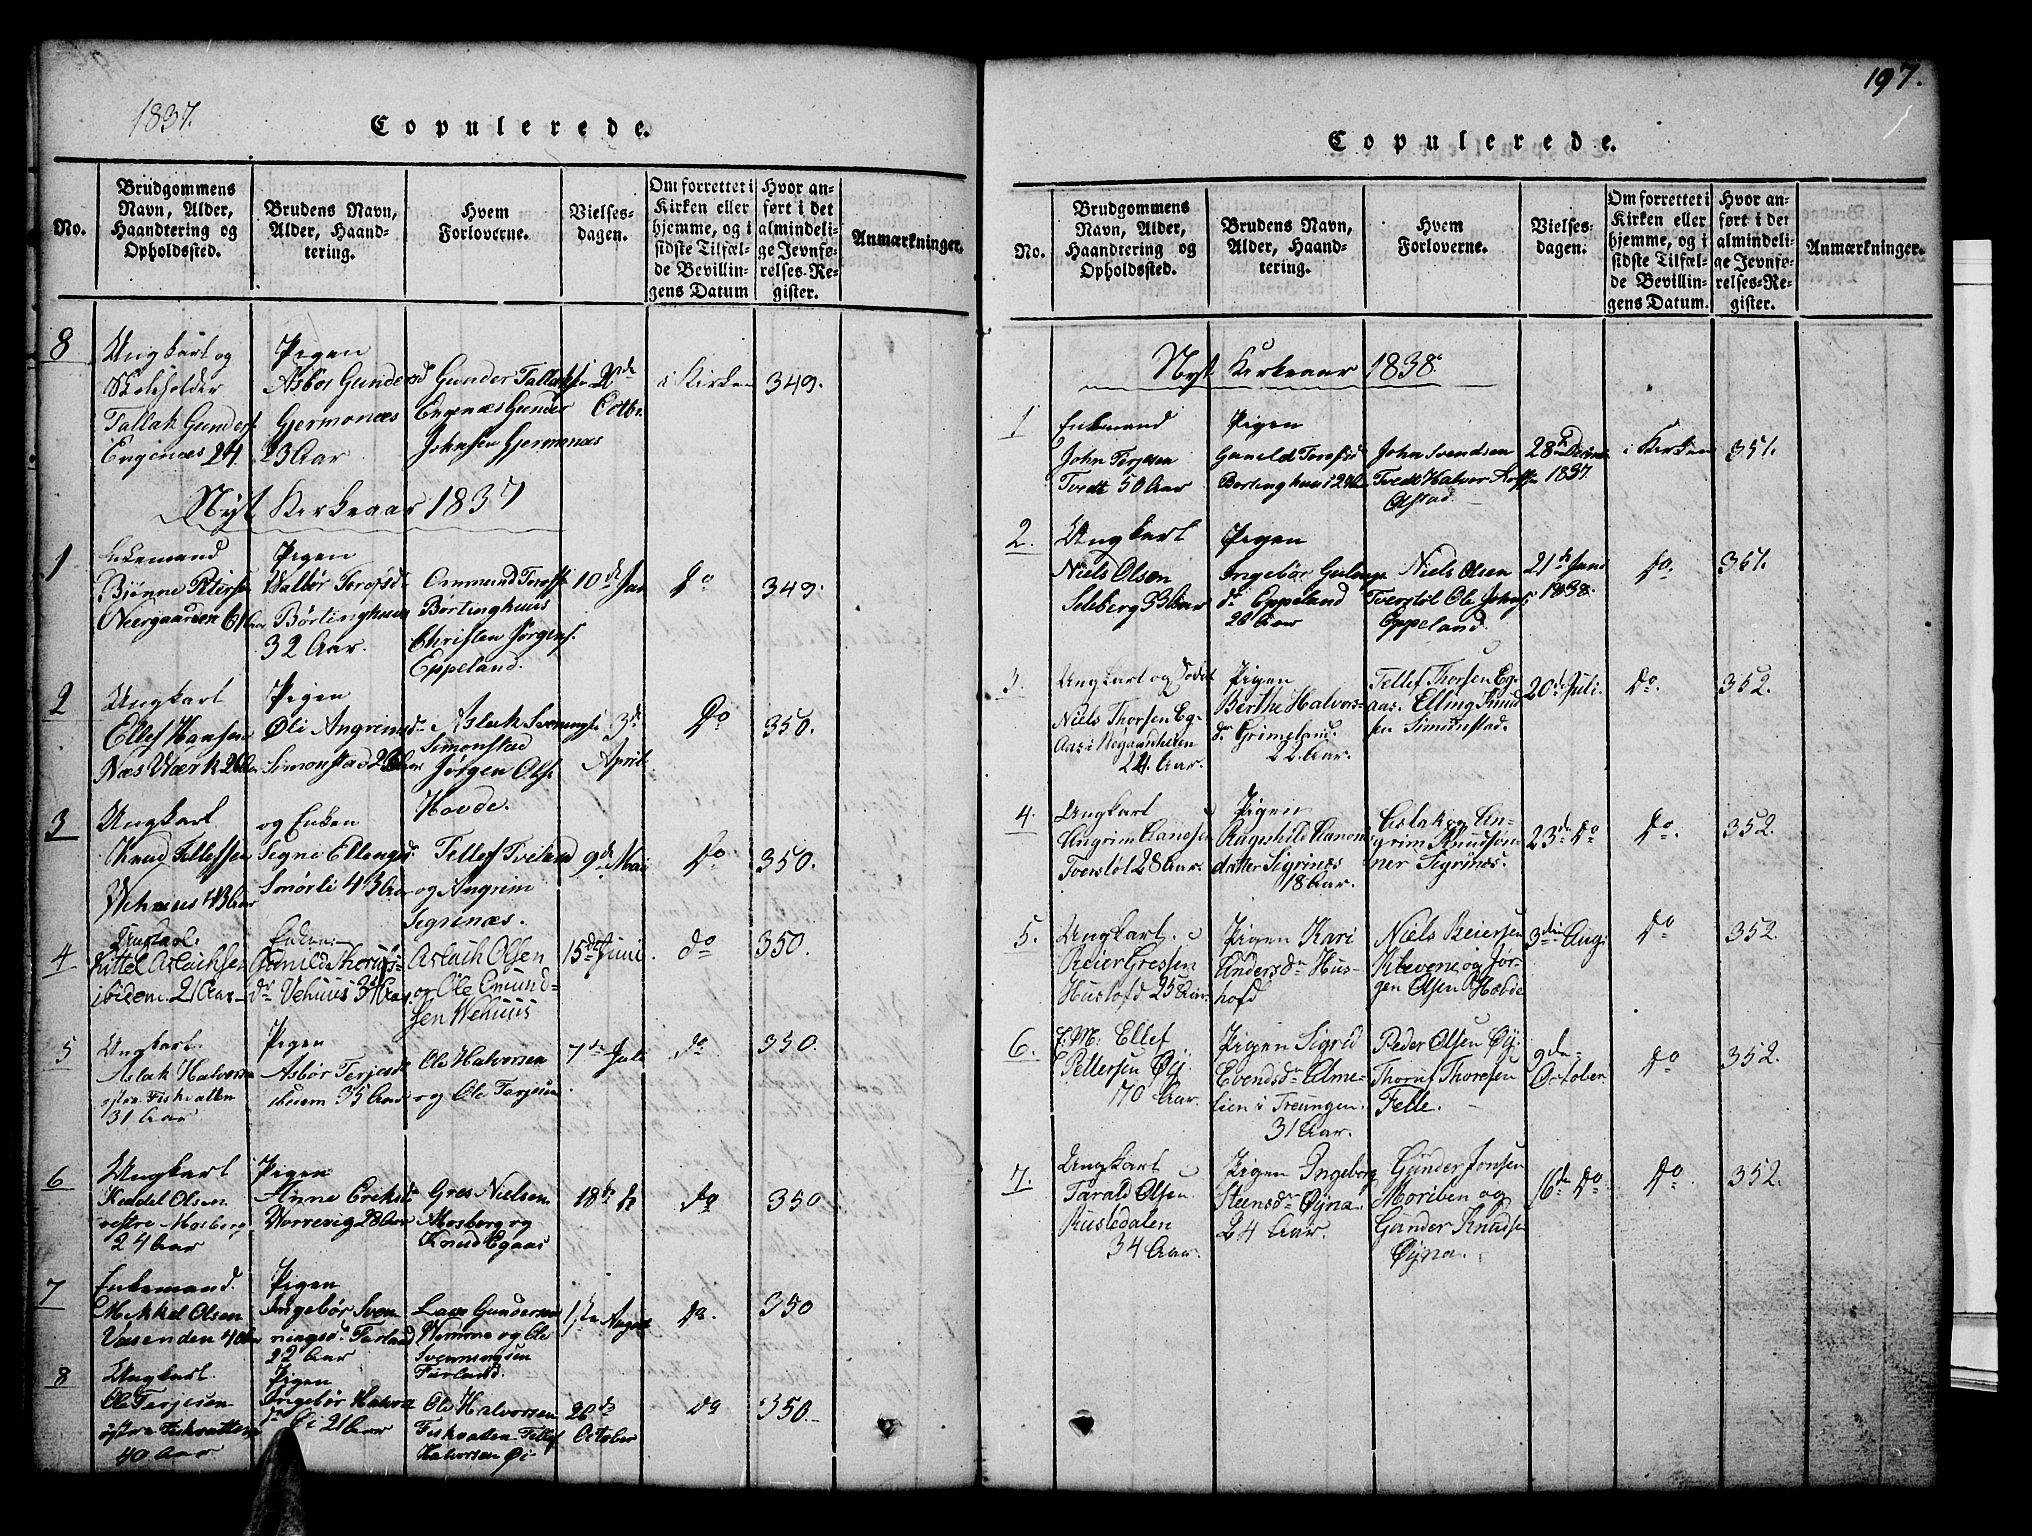 1837.
Copulerede.
No.
Brudgommens
Navn, Alder,
Haandtering og
Opholdssted.
Brudens Navn,
Alder, Haand-
tering.
Hvem
Forloverne.
Vielses-
dagen.
Om forrettet i
Kirken eller
hjemme, og i
sidste Tilfæl-
de Bevillin-
gens Datum
Hvor an-
ført i det
almindeli-
ge Jevnfø-
relses-Re-
gister.
Anmærkninger.
8
Ungkarl og
Skoleholder
Tallak Gunders
Enginæs 24
Pigen
Asbør Gundersd
Gjermonæs
23 Aar
Gunder Tallaks
Enginæs Gunder
Johnsen Gjermonæs
2de
Octbr.
i Kirken
349.
Nyt Kirkeaar 1837
1
Enkemand
Bjønne Peters
Neergaarden 61 Aar
Pigen
Valbør Torofsd
Børtinghuus
32 Aar.
Ommund Torofs
Børtinghuus
Christen Jørgens.
Eppeland.
10de Jan
Do
349.
2
Ungkarl
Ellef Hansen
Næs Værk 26 Aar
Pigen
Øli Angrimsd
Simonstad 26 Aar
Aslak Svenungs
Simonstad
Jørgen Ols.
Hovde.
3de
April
Do
350.
3
Ungkarl
Knud Tellefsen
Wehuus 43 Aar
og Enken
Segne Ellingsd.
Smørli 43 Aar
Tellef Tveland
og Angrim
Segrinæs.
9de Mai
Do
350.
4
Ungkarl.
Kittel Aslachsen
ibidem. 21 Aar
Enken
Gunild Thorufs-
dr Vehuus 31 Aar
Aslach Olsen
og Ole Emund-
sen Wehuus
15de Juni
do
350.
5
Ungkarl
Aslak Halvorsen
østre Fiskvatten
31 Aar
Pigen
Asbør Terjesd
ibidem 35 Aar
Ole Halvorsen
og Ole Terjesen
7de Juli
do
350.
6
Ungkarl
Keddel Olsen
vestre Mosberg
24 Aar
Pigen
Anne Eriksd
Vorrevig 28 Aar
Gres Nielsen
Mosberg og
Knud Egaas
18de
do
350
7
Enkemand.
Mekkel Olsen
Vasenden 40 Aar
Pigen
Ingebør Sven
ningsd. Furland
22 Aar
Lars Gundersen
Wimme og Ole
Svenningsen
Furland.
1ste August
do.
350
8
Ungkarl.
Ole Terjesen
østre Fiskvatten
40 Aar
Pigen
Ingebør Halvor
dr Øi 21 Aar
Ole Halvorsen
Fiskvatten Tellef
Halvorsen Øi
26de
October
do
350.
197.
Copulerede.
No.
Brudgommens
Navn, Alder,
Haandtering og
Opholdssted.
Brudens Navn,
Alder, Haand-
tering.
Hvem
Forloverne.
Vielses-
dagen.
Om forrettet i
Kirken eller
hjemme, og i
sidste Tilfæl-
de Bevillin-
gens Datum.
Hvor an-
ført i det
almindeli-
ge Jevnfø-
relses-Re-
gister.
Anmærkninger.
Nyt Kirkeaar 1838.
1
Enkemand
John Terjesen
Tvedt 50 Aar
Pigen
Gunild Torofsd
Børtinghuus 29 Aar
John Svendsen
Tvedt Halvor
Olstad.
28de Decbr
1837.
i Kirken
351.
2.
Ungkarl
Niels Olsen
Seleberg 33 Aar
Pigen
Ingebør Gulaugs
dr Eppeland
26 Aar
Niels Olsen
Tverstøl Ole Johns
Eppeland.
21de Juni
1838.
do.
361.
3.
Ungkarl og
Niels Thorsen Eg-
aas i
24 Aar.
Pigen
Berthe Halvors-
dr Grimeland.
22 Aar.
Tellef Thorsen Eg-
aas. Elling Knud
sen Simonstad.
20de Juli.
do.
352.
4.
Ungkarl
Angrim Aanesen
Tverstøl 28 Aar.
Pigen
Ragnhild Aanons
datter Sigrinæs
18 Aar.
Aslak og An-
grim Knudsøn-
ner Sigrinæs.
23de do
do.
352.
5.
Ungkarl
Reier Gressen
Husstofd 25 Aar
Pigen Kari
Andersdr Hus-
hofd
Niels Reiersen
Klevene og Jør-
gen Olsen Hovde
3die Aug.
do
352.
6.
E.M: Ellef
Pettersen Øÿ
70 Aar.
Pigen Sigrid
Evendsdr Elme-
lien i Treungen.
31 Aar.
Peder Olsen Øÿ.
Thoruf Thoresen
Felle.
9de
October
do
352.
7.
Ungkarl
Tarald Olsen
Rustedalen
34 Aar.
Pigen Ingeborg
Steensdr Øyna.
24 Aar.
Gunder Jonsen
Moriben og
Gunder Knuds
Øyna.
16de do
do.
352.